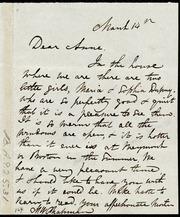 March 14th
Dear Anne.
In the house
where we are there are two
little girls, Maria & Sophia Dupuy,
who are so perfectly good & quiet
that it is a pleasure to see them.
It is so warm that all the
windows are open, & it is hotter
than it ever is at Weymouth
or Boston in the Summer. We
have a very pleasant time,
& should like to have you with
us if it could be. Write soon to
your affectionate Mother
M.W. Chapman